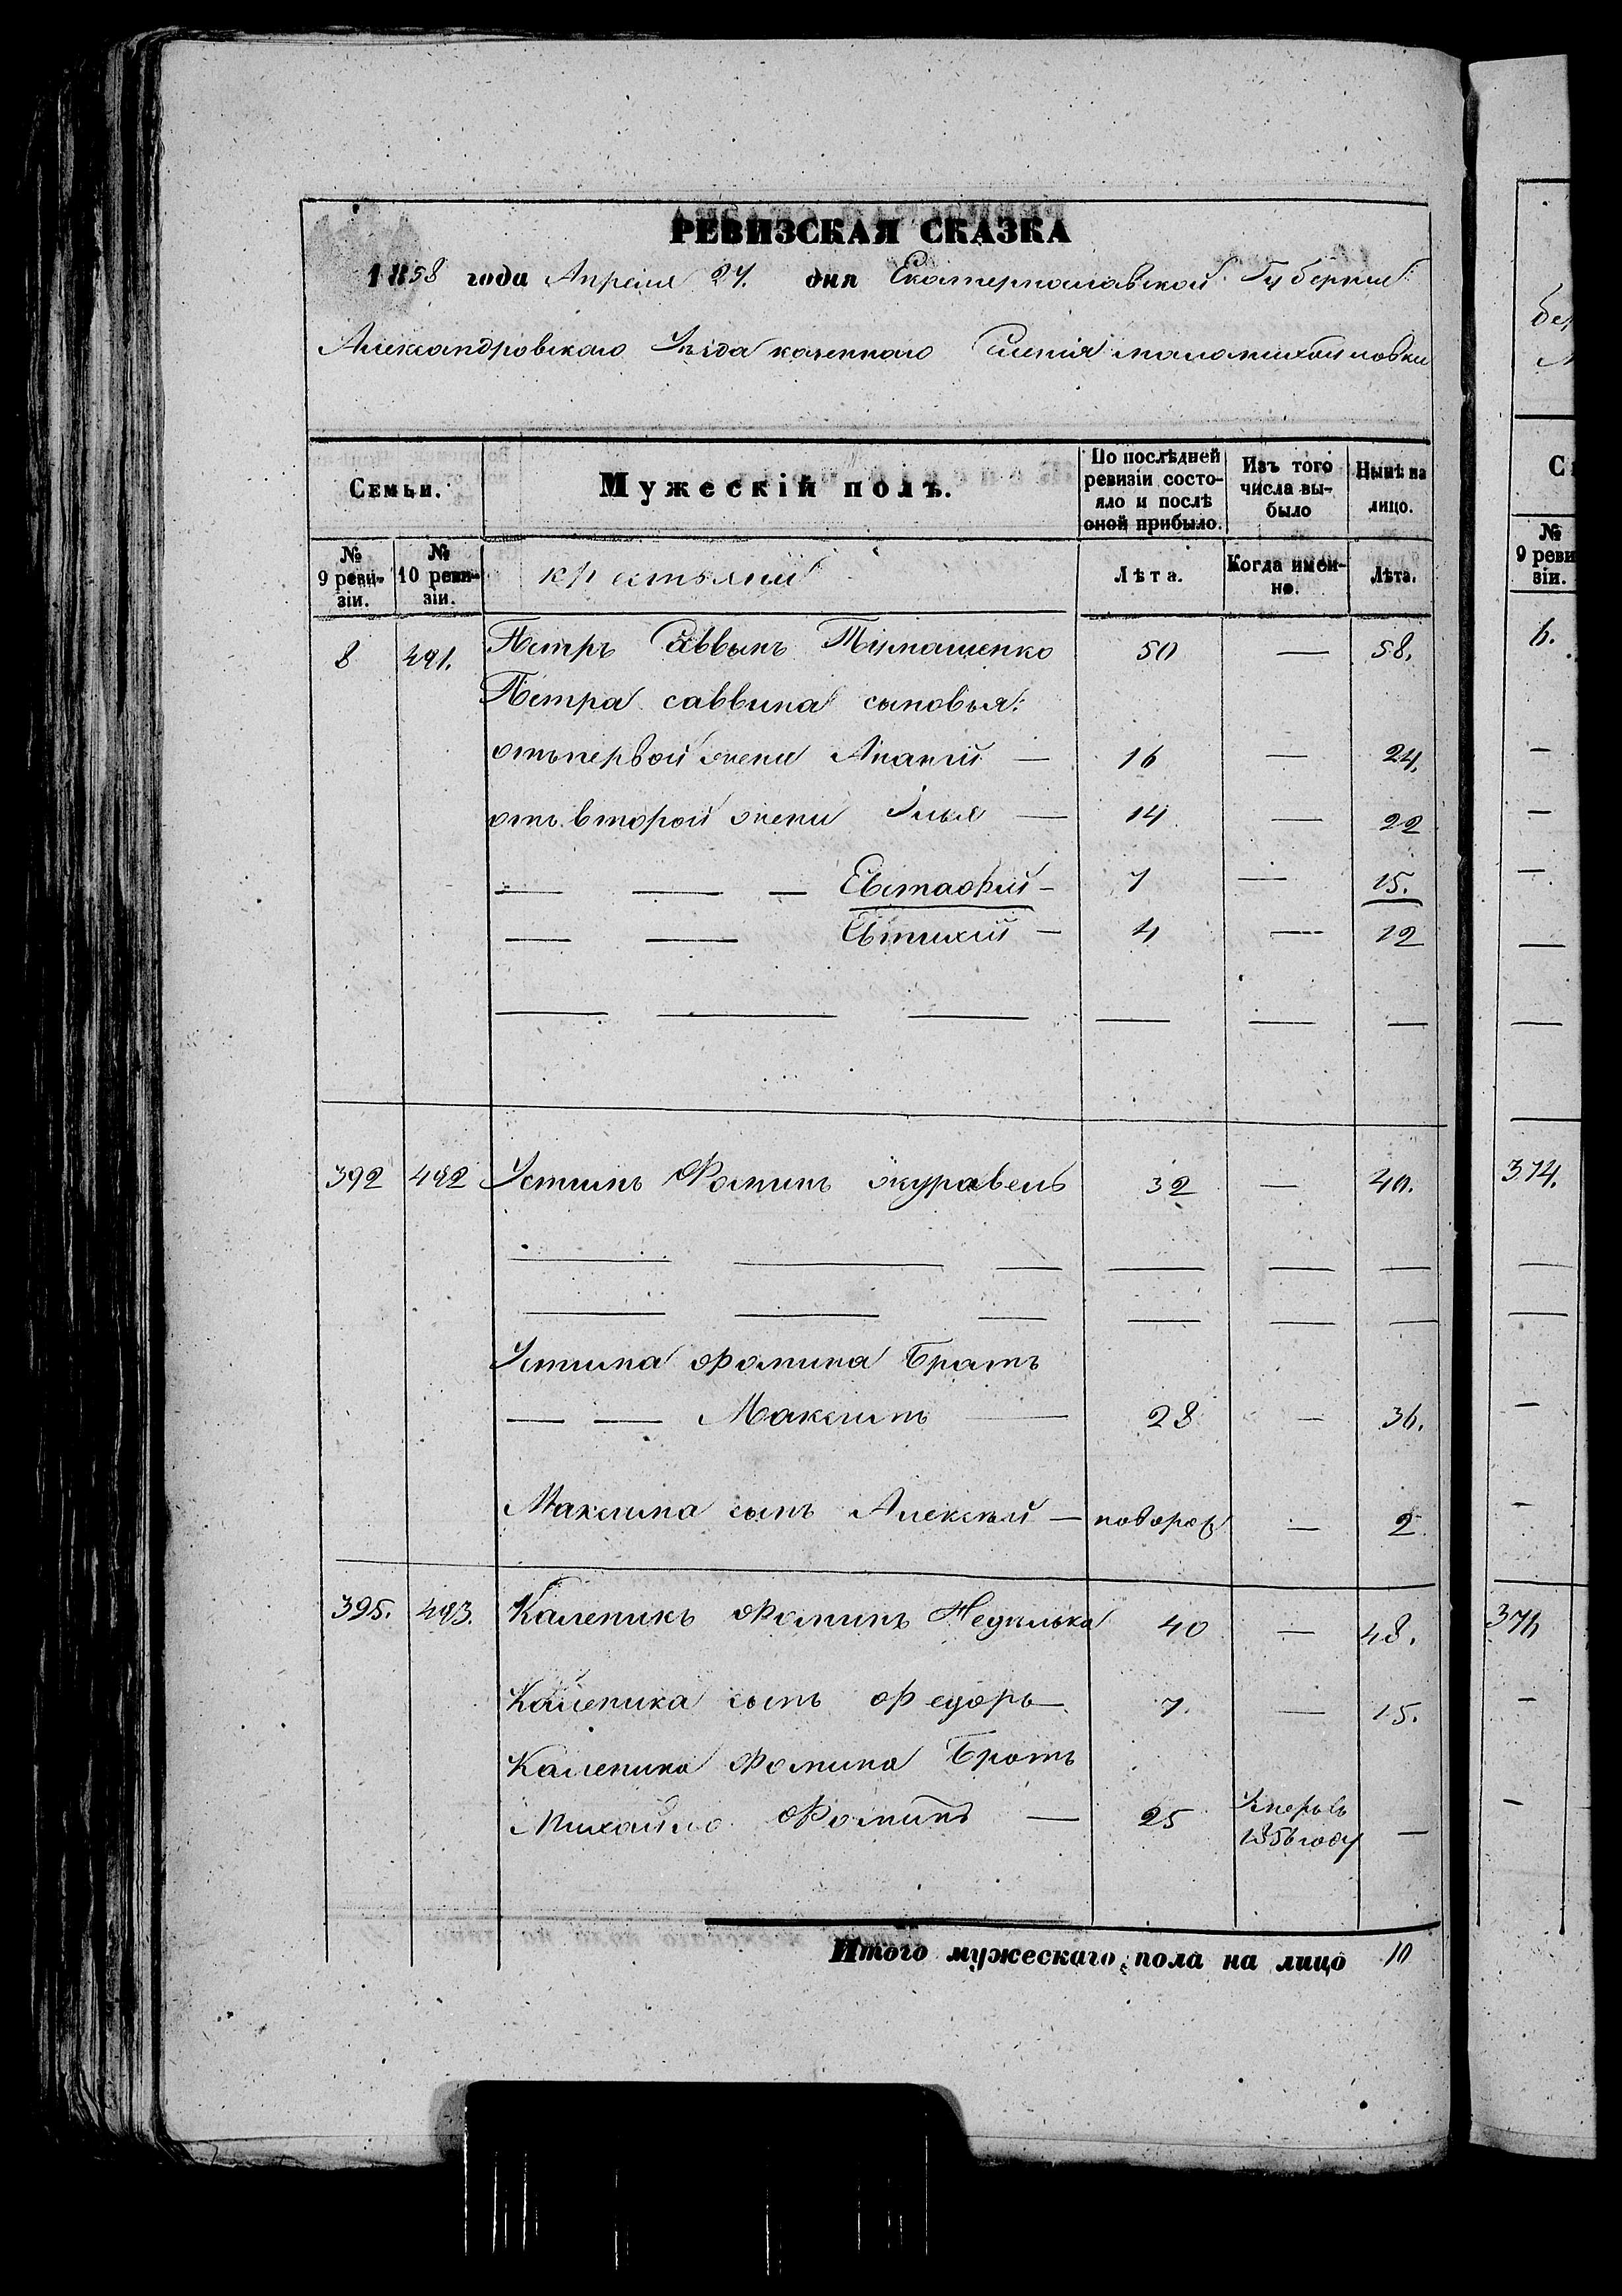 РЕВИЗСКАЯ СКАЗКА
1858 года Апреля 27. дня Екатеринославской Губернии
Александровскаго Уезда казеннаго Селенія маломихайловки
Семьи.
Мужескій полъ.
По послѣдней ревизіи состояло и послѣ оной прибыло.
Изъ того числа выбыло
Нынѣ на лицо.
№ 9 ревизіи.
№ 10 ревизіи.
крестьяни
Лѣта.
Когда именно.
Лѣта.
8 491. Петръ Саввынъ Тимошенко 50 — 58.
Петра саввина сыновья:
отъ первой жены Ананій — 16 — 24.
отъ второй жены Илья — 14 — 22
— — — Евстафій — 7 — 15.
— — Евтихій — 4 — 12
— — — — — —
392 492 Устинъ Фоминъ журавель 32 — 40.
— — — — — —
— — — — — —
Устина Фомина Братъ
— — Максимъ — 28 — 36.
Максима сынъ Алексѣй — новорож — 2
395. 493. Каленикъ Фоминъ Недилька 40 — 48.
Каленика сынъ Федоръ — 7. — 15.
Каленика Фомина Братъ
Михайло Фоминъ — 25 Умеръ въ 1856 году —
Итого мужескаго пола на лицо 10
С
№ 9 реви
зіи.
6.
374.
376